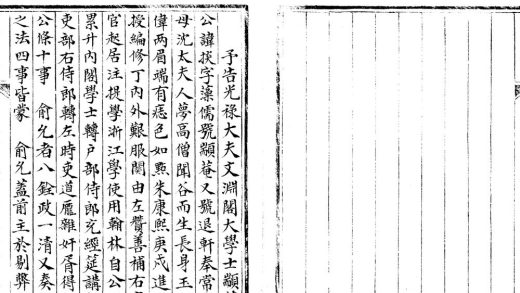 予告光祿大夫文淵閣大學士顓
公諱掞字藻儒號顓菴又號退軒奉常
母沈太夫人夢高僧聞谷而生長身玉
偉兩眉端有痣色如㸃朱康熙庚戌進
授編修丁内外艱服闋由左贊善補右
官起居注提學浙江學使用翰林自公
累升内閣學士轉户部侍郎充經筵講
吏部右侍郎轉左時吏道龐雜奸胥得
公條十事 俞允者八銓政一清又奏
之法四事皆蒙 俞允蓋前主於剔弊